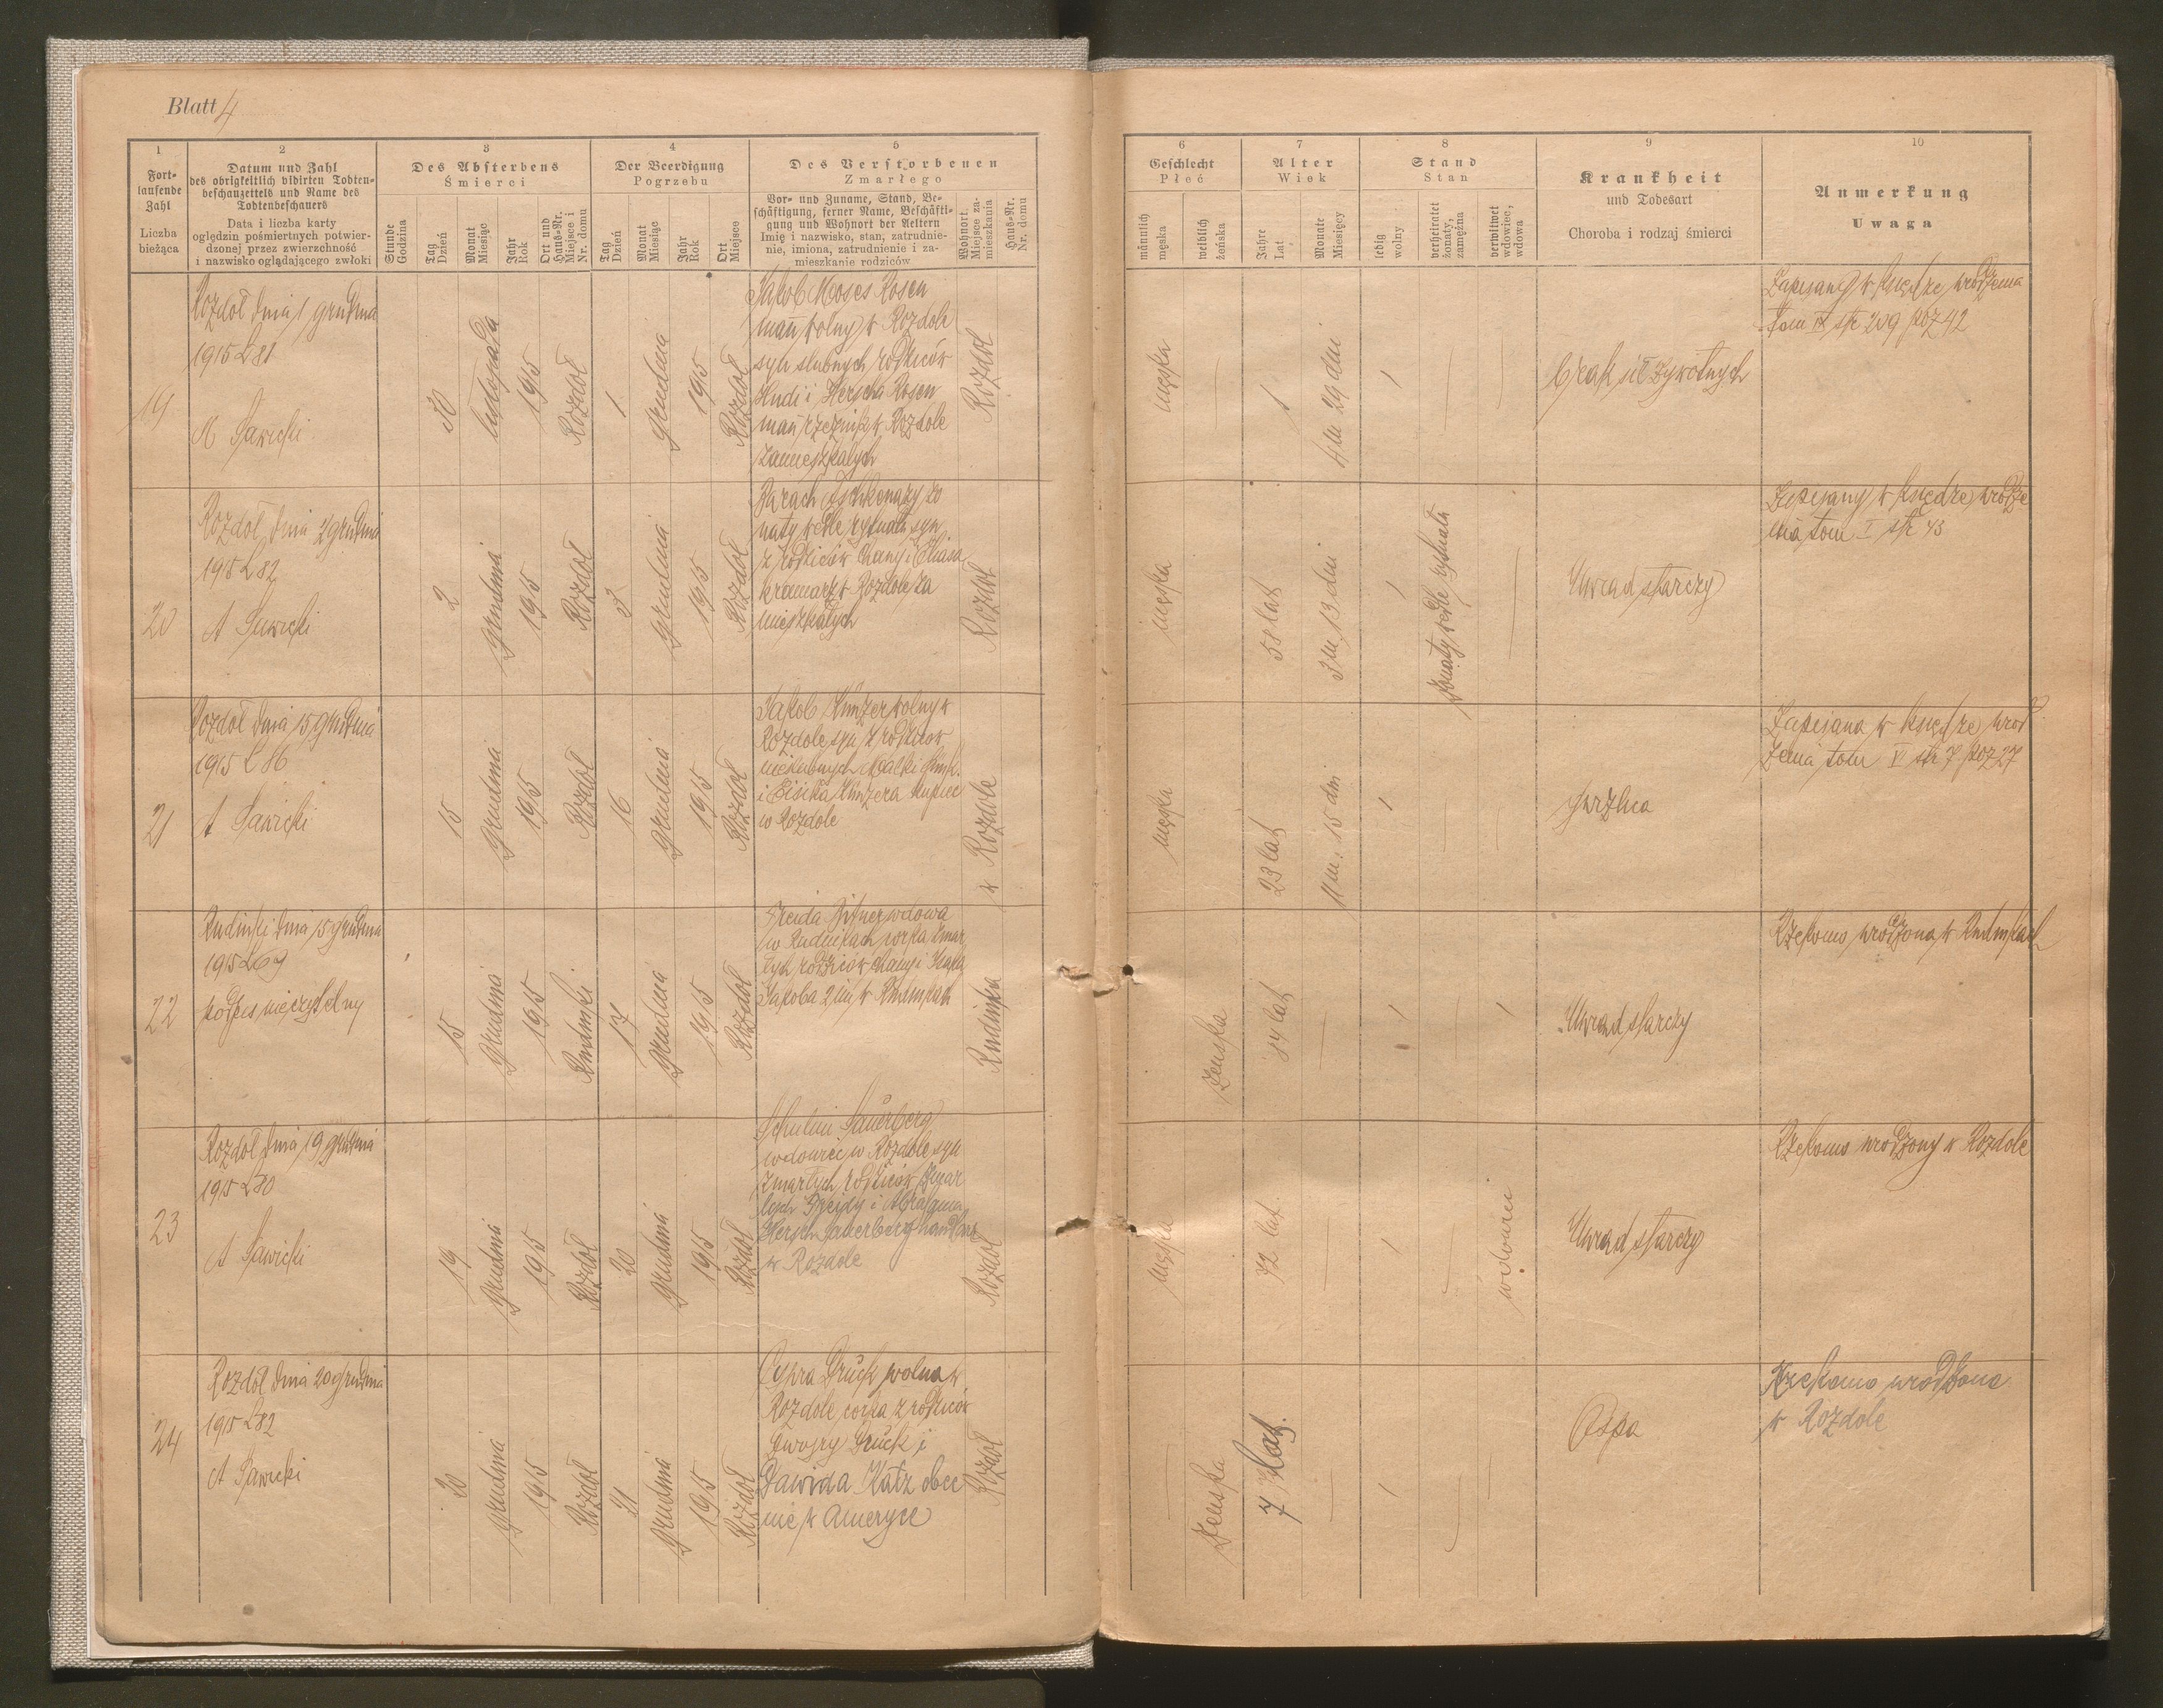 Blatt 4
1
Fort-
laufende
Zahl
Liczba
bieżąca
2
Datum und Zahl
des obrigkeitlich vidirten Todten-
beschauzettels und Name des
Todtenbeschauers
Data i liczba karty
oględzin pośmiertnych potwier-
dzonej przez zwierzchność
i nazwisko oglądającego zwłoki
3
Des Absterbens
Śmierci
Stunde
Godzina
Tag
Dzień
Monat
Miesiąc
Jahr
Rok
Ort und
Haus-Nr.
Miejsce i
Nr. domu
4
Der Beerdigung
Pogrzebu
Tag
Dzień
Monat
Miesiąc
Jahr
Rok
Ort
Miejsce
5
Des Verstorbenen
Zmarłego
Vor- und Zuname, Stand, Be-
schäftigung, ferner Name, Beschäfti-
gung und Wohnort der Aeltern
Imię i nazwisko, stan, zatrudnie-
nie, imiona, zatrudnienie i za-
mieszkanie rodziców
Wohnort
Miejsce za-
mieszkania
Haus-Nr.
Nr. domu
6
Geschlecht
Płeć
männlich
męska
weiblich
żeńska
7
Alter
Wiek
Jahre
Lat
Monate
Miesięcy
8
Stand
Stan
ledig
wolny
verheiratet
żonaty,
zamężna
verwitwet
wdowiec,
wdowa
9
Krankheit
und Todesart
Choroba i rodzaj śmierci
10
Anmerkung
Uwaga
19
Rozdół dnia 1 grudnia
1915 L 81
A Sawicki
30
listopada
1915
Rozdół
1
grudnia
1915
Rozdół
Jakob Moses Rosen
mañ wolny w Rozdole
syn ślubnych rodziców
Hudi i Herscha Rosen
mañ rzeźnik w Rozdole
zamieszkałych
Rozdół
męska
1
4 m 29 dni
1
brak sił żywotnych
Zapisany w księdze urodzenia
tom IX str 209 poz 42
20
Rozdół dnia 2 grudnia
1915 L 82
A Sawicki
2
grudnia
1915
Rozdół
3
grudnia
1915
Rozdół
Barach Aschkenazy żo
naty wedle rytuału syn
z rodziców Chany i Eliasa
kramarz w Rozdole za
mieszkałych
Rozdół
męska
58 lat
3 m 13 dni
1
żonaty wedle rytuału
Uwiąd starczy
Zapisany w księdze urodze
nia tom I str 43
21
Rozdół dnia 15 grudnia
1915 L 86
A Sawicki
15
grudnia
1915
Rozdół
16
grudnia
1915
Rozdół
Jakob Künzer wolny w
Rozdole syn z rodziców
nieślubnych Malki
i Eisika Künzera kupiec
w Rozdole
w Rozdole
męska
23 lat
11 m. 15 dni
1
gruźlica
Zapisana w księdze urod
zenia tom VI str 7 poz 27
22
Rudniki dnia 15 grudnia
1915 L 69
podpis nieczytelny
15
grudnia
1915
Rudniki
17
grudnia
1915
Rozdół
Freida Bitner wdowa
w Rudnikach córka zmar
łych rodziców Chany i
Jakoba w Rudnikach
Rudnika
żeńska
84 lat
1
1
Uwiąd starczy
Rzekomo urodzona w Rudnikach
23
Rozdół dnia 19 grudnia
1915 L 80
A Sawicki
19
grudnia
1915
Rozdół
20
grudnia
1915
Rozdół
Schulim Sauerberg
wdowiec w Rozdole syn
zmarłych rodziców zmar
łych Freidy i Abrahama
Hersch Sauerberg handlarz
w Rozdole
Rozdół
męska
72 lat
1
wdowiec
Uwiąd starczy
Rzekomo urodzony w Rozdole
24
Rozdół dnia 20 grudnia
1915 L 82
A Sawicki
20
grudnia
1915
Rozdół
21
grudnia
1915
Rozdół
Cypra Drück wolna w
Rozdole córka z rodziców
Dwojry Drück i
Dawida Katz obec
nie w Ameryce
Rozdół
żeńska
7 lat.
1
Ospa
Rzekomo urodzona
w Rozdole